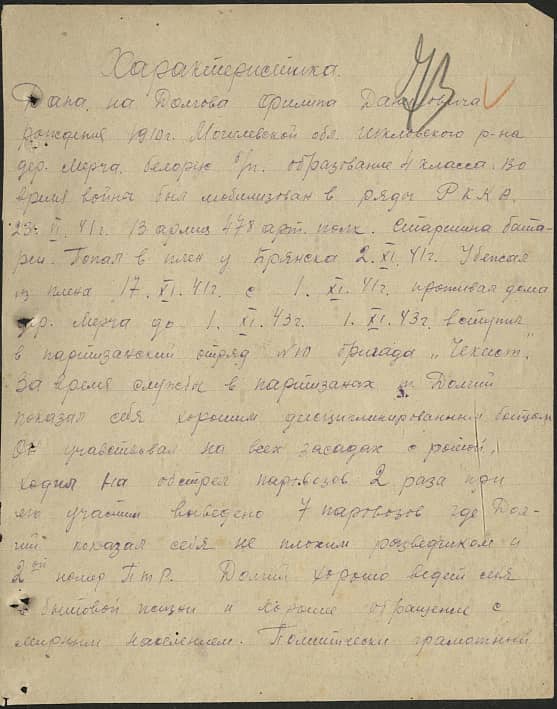 Характеристика.
Дана на Долгова Филипа Даниловича
рождения 1910г. Могилевской обл. Шкловского р-на
дер. Мерча. белорус б/п. образование 4 класса. Во
время войны был мобилизован в ряды Р К К А.
41г. 13 армии 478 арт. полк. Старшина бата-
реи. Попал в плен у Брянска 2. XI. 41г. Убежал
из плена 17. XI. 41г. с 1. XI. 41г. проживал дома
дер. Мерча до 1. XI. 43г. 1. XI. 43г. вступил
в партизанский отряд №10 бригада „Чекист".
За время службы в партизанах т. Долгий
показал себя хорошим дисциплинированным бойцом
Он учавствовал на всех засадах с ротой,
ходил на обстрел паровозов 2 раза при
его участии выведено 7 паровозов где Дол-
гий показал себя не плохим розведчиком и
2ой номер П т р. Долгий хорошо ведет себя
в бытовой жизни и обращение с
мирным населением. Политически грамотный